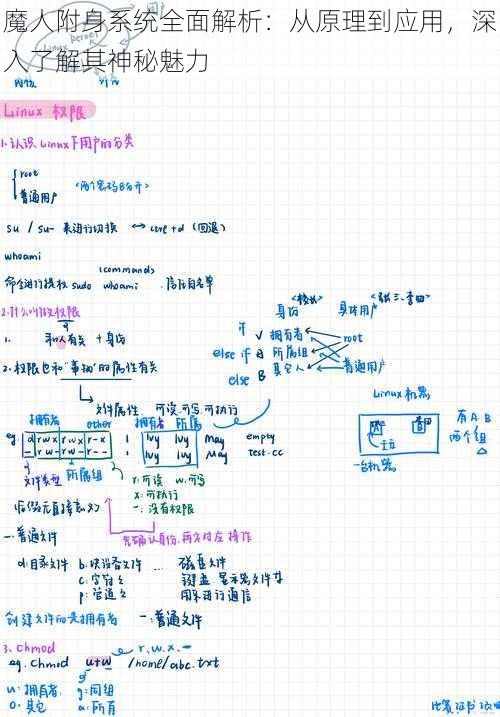 魔人附身系统全面解析：从原理到应用，深
入了解其神秘魅力
Linux 权限
1.认识 Linux下用户的分类
root
普通用户
su / su- 来进行切换 ↔ ctrl+d (回退)
whoami
(command)
sudo whoami
2.什么叫做权限
1. 和人有关 + 身份
身份
具体用户
<张三、李四>
if 拥有者
root
else if 所属组
else 其它人
普通用户
2.权限也和“事物”的属性有关
文件属性 可读 可写 可执行
拥有者 other 拥有者 所属
eg. d rwx rwx r-x 1 lvy lvy May empty
- rw- rw- r-- 1 lvy lvy May test.cc
文件类型 所属组
r:可读 w:可写
x:可执行
-: 没有权限
Linux 机器
有A.B
两个组
一台机器
先确认身份,再
操作
-:普通文件
d:目录文件 b:块设备文件 磁盘文件
c:字符文 键盘 显示器文件
p:管道文 用来进行通信
创建文件的是拥有者 -:普通文件
3. chmod
r.w.x.-
eg. chmod u+w /home/abc.txt
u: 拥有者 g:同组
o: 其它 a:所有